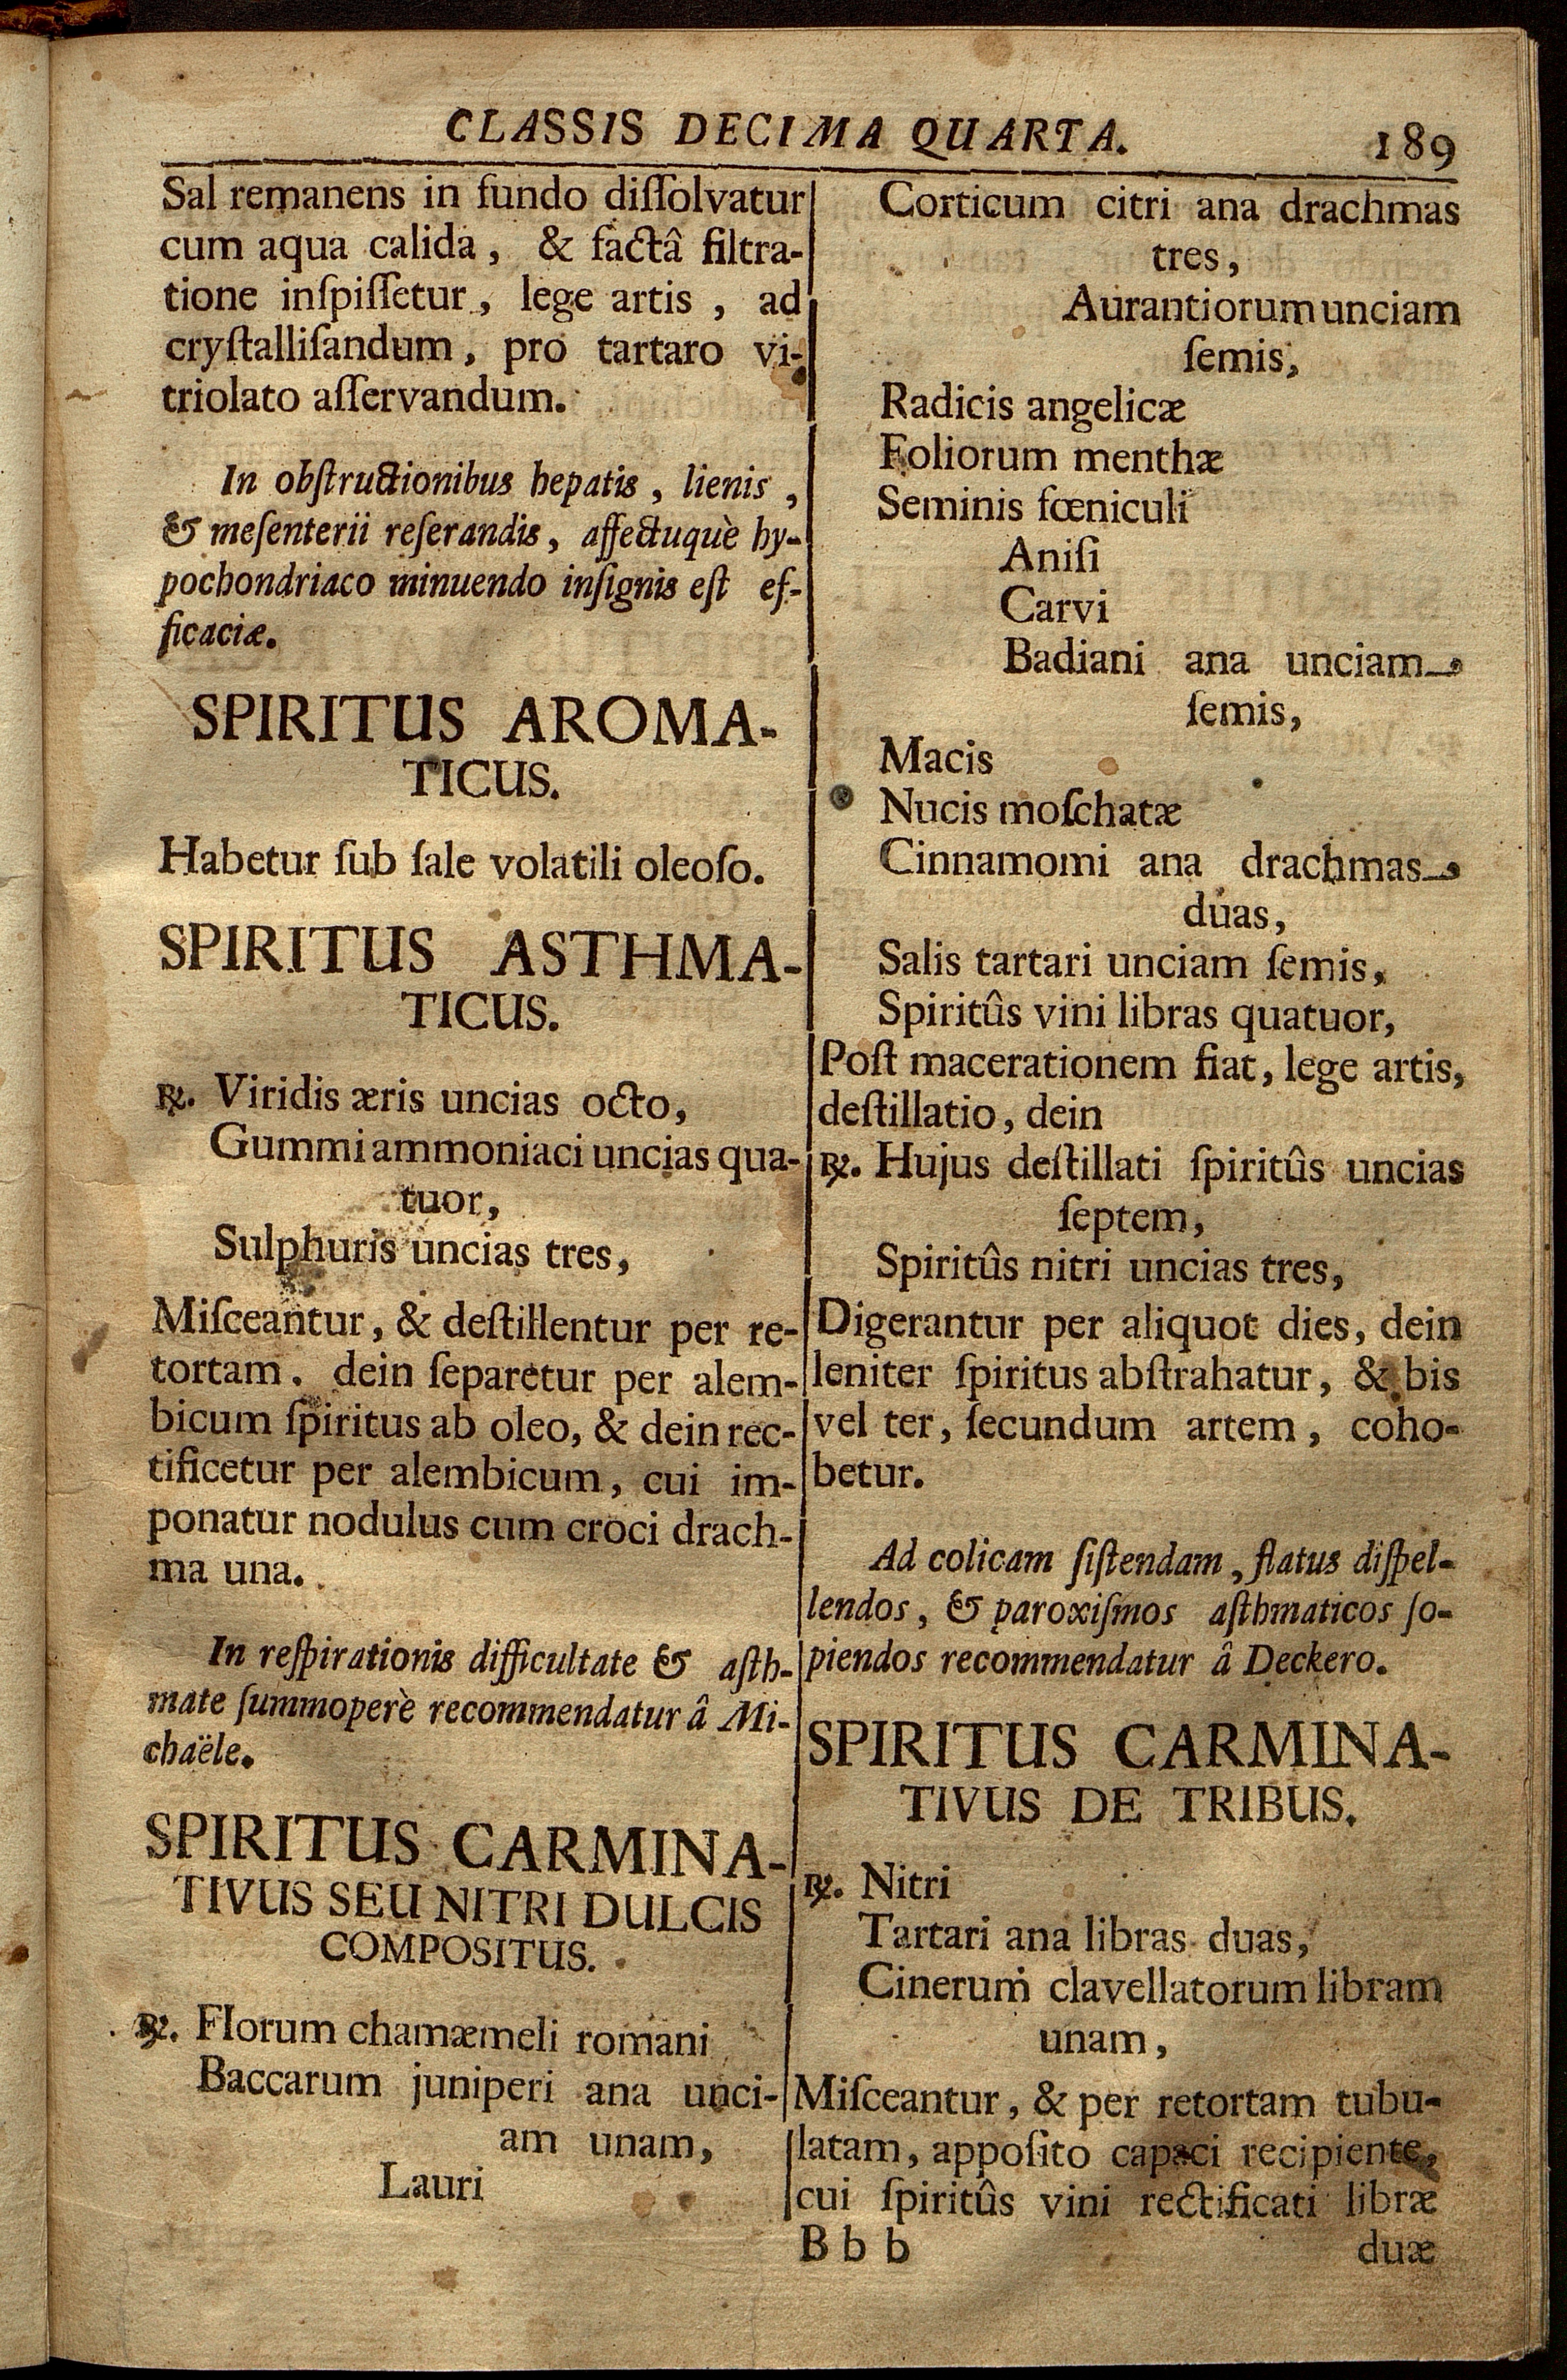 CLASSIS DECIMA QUARTA. 189
Sal remanens in fundo diſſolvatur
cum aqua calida, & factâ filtra-
tione inſpiſſetur, lege artis, ad
cryſtalliſandum, pro tartaro vi-
triolato aſſervandum.
In obſtructionibus hepatis, lienis,
& meſenterii reſerandis, affectuquè hy-
pochondriaco minuendo inſignis eſt ef-
ficaciæ.
SPIRITUS AROMA-
TICUS.
Habetur ſub ſale volatili oleoſo.
SPIRITUS ASTHMA-
TICUS.
℞. Viridis æris uncias octo,
Gummi ammoniaci uncias qua-
tuor,
Sulphuris uncias tres,
Miſceantur, & deſtillentur per re-
tortam. dein ſeparetur per alem-
bicum ſpiritus ab oleo, & dein rec-
tificetur per alembicum, cui im-
ponatur nodulus cum croci drach-
ma una.
In reſpirationis difficultate & aſth-
mate ſummoperè recommendatur â Mi-
chaële.
SPIRITUS CARMINA-
TIVUS SEU NITRI DULCIS
COMPOSITUS.
℞. Florum chamæmeli romani
Baccarum juniperi ana unci-
am unam,
Lauri
Corticum citri ana drachmas
tres,
Aurantiorum unciam
ſemis,
Radicis angelicæ
Foliorum menthæ
Seminis fœniculi
Aniſi
Carvi
Badiani ana unciam
ſemis,
Macis
Nucis moſchatæ
Cinnamomi ana drachmas
duas,
Salis tartari unciam ſemis,
Spiritûs vini libras quatuor,
Poſt macerationem fiat, lege artis,
deſtillatio, dein
℞. Hujus deſtillati ſpiritûs uncias
ſeptem,
Spiritûs nitri uncias tres,
Digerantur per aliquot dies, dein
leniter ſpiritus abſtrahatur, & bis
vel ter, ſecundum artem, coho-
betur.
Ad colicam ſiſtendam, flatus diſpel-
lendos, & paroxiſmos aſthmaticos ſo-
piendos recommendatur â Deckero.
SPIRITUS CARMINA-
TIVUS DE TRIBUS.
℞. Nitri
Tartari ana libras duas,
Cinerum clavellatorum libram
unam,
Miſceantur, & per retortam tubu-
latam, appoſito capaci recipiente,
cui ſpiritûs vini rectificati libræ
B b b duæ